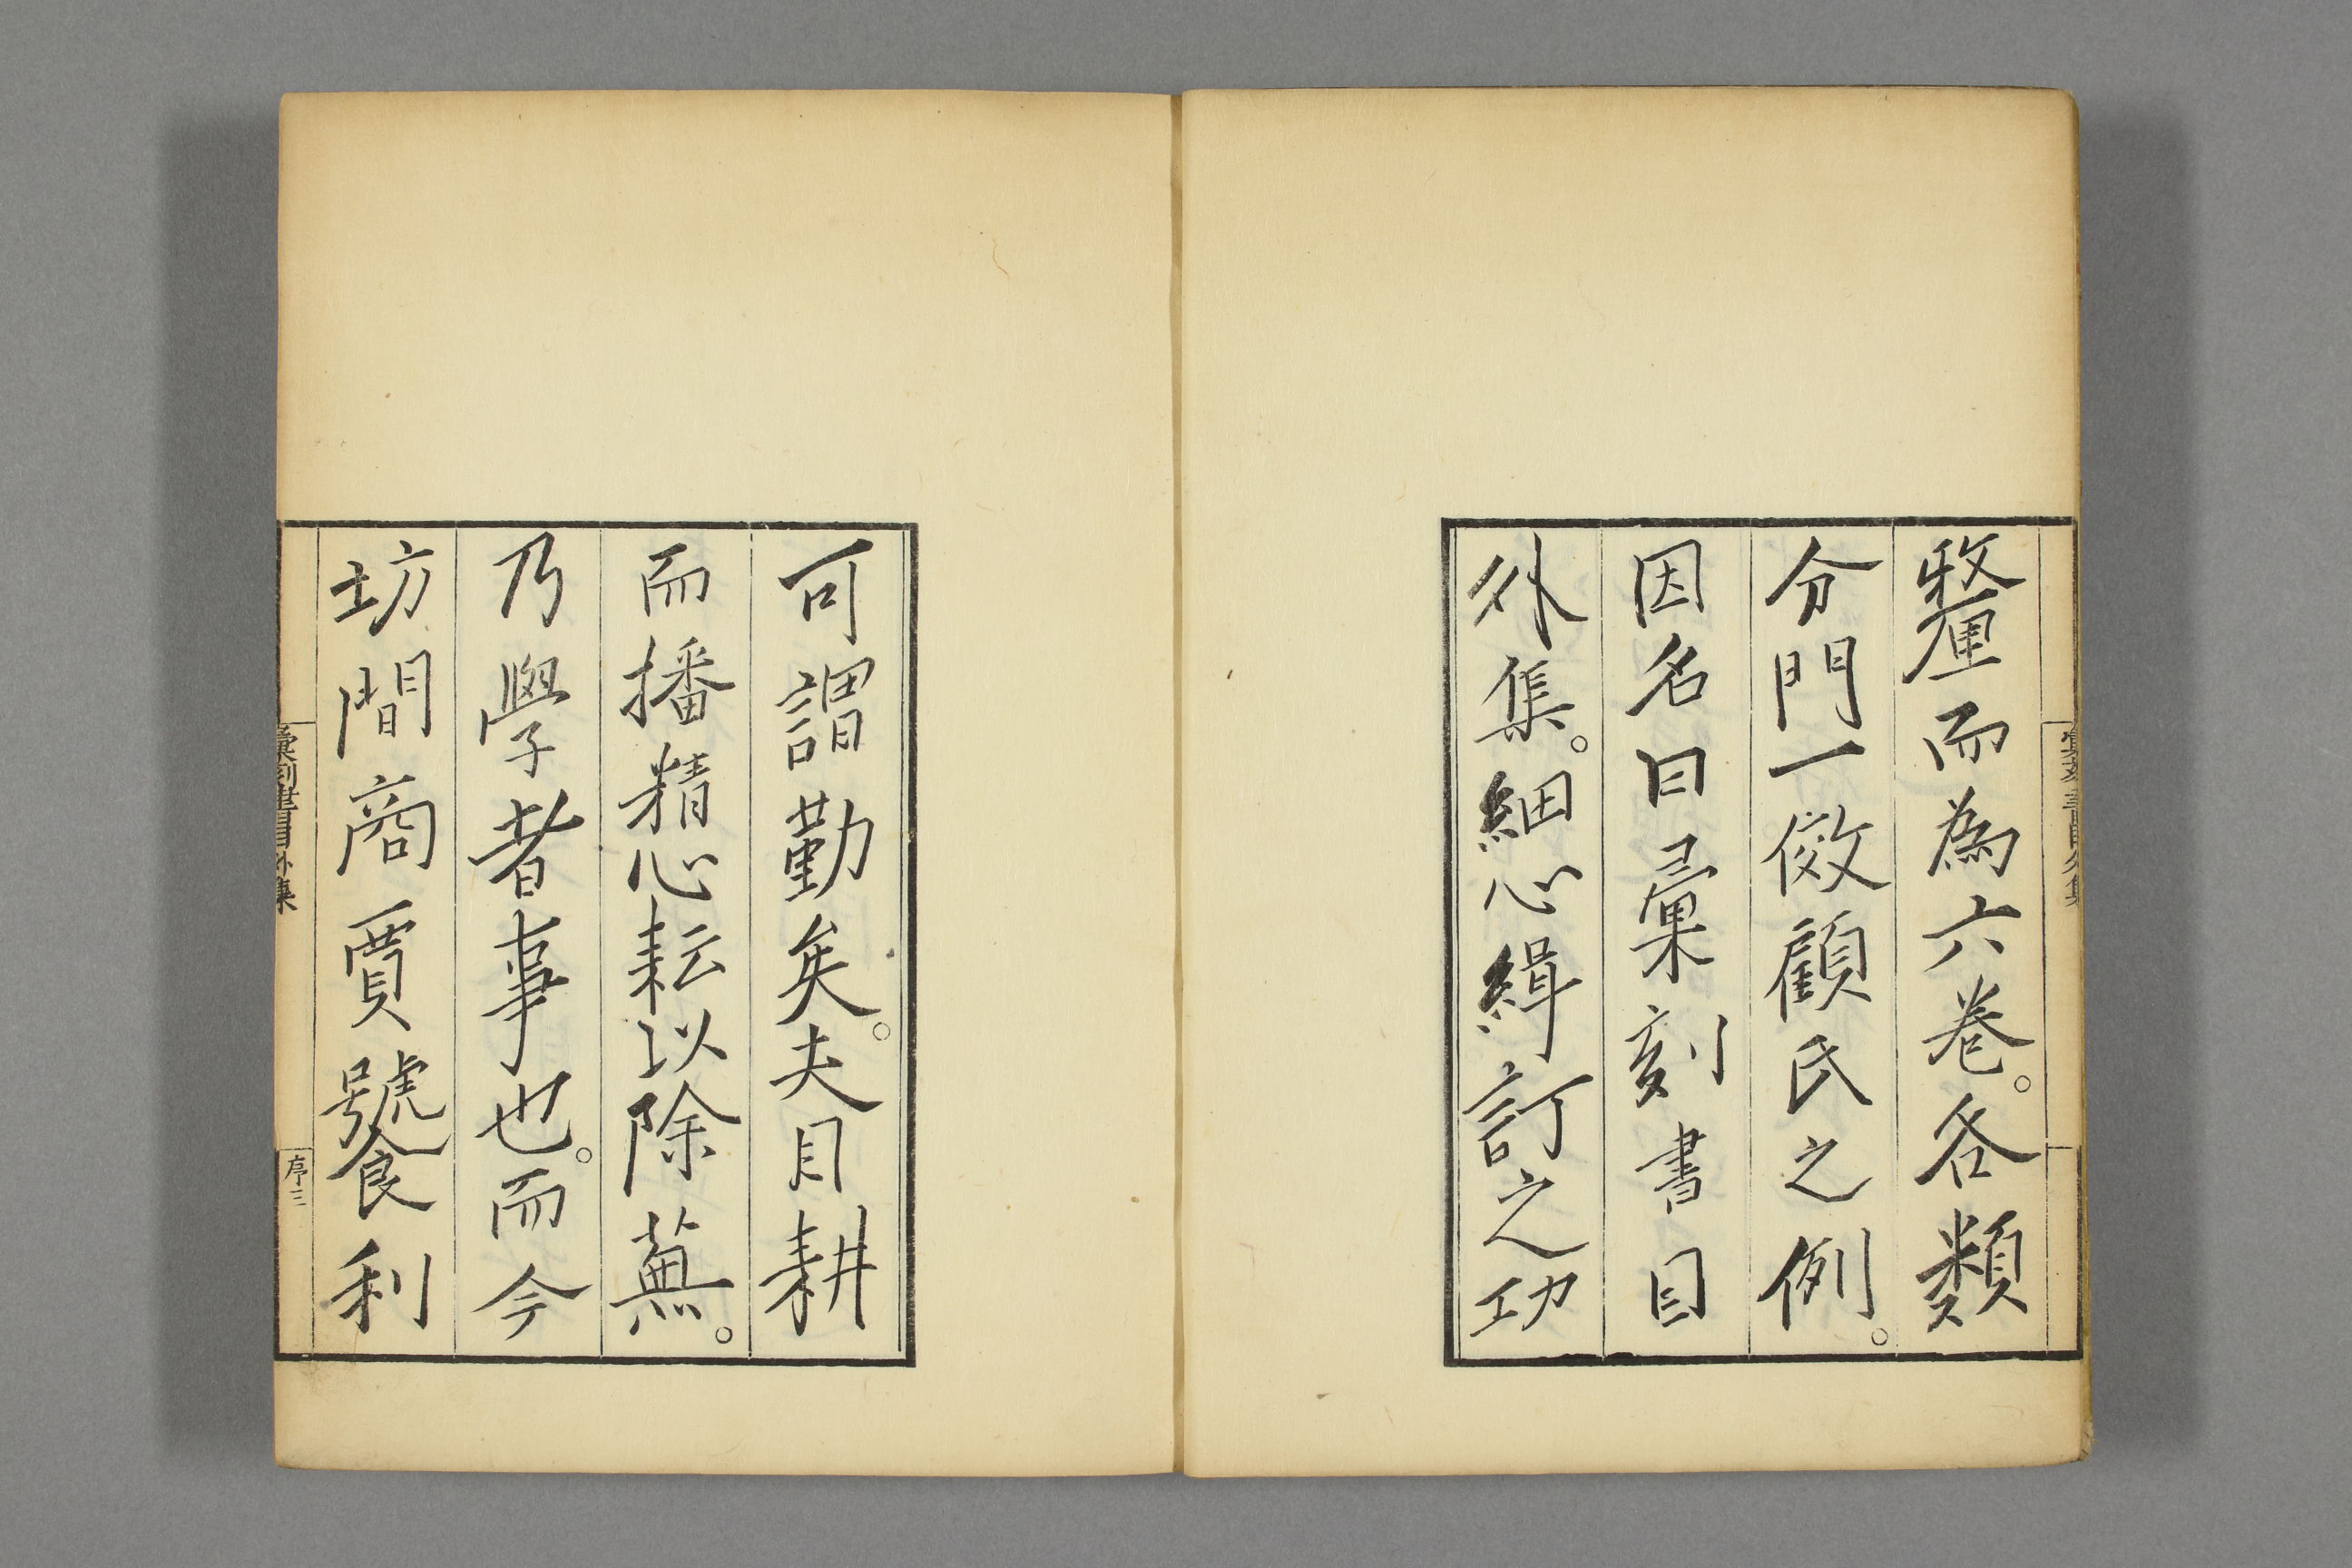 釐而為六卷。各類
分門一倣顧氏之例。
因名曰彙刻書目
外集。細心緝訂之功
可謂勤矣。夫目耕
而播精心耘以除蕪。
乃學者事也。而今
坊間商賈號餐利
彙刻書目外集
序三